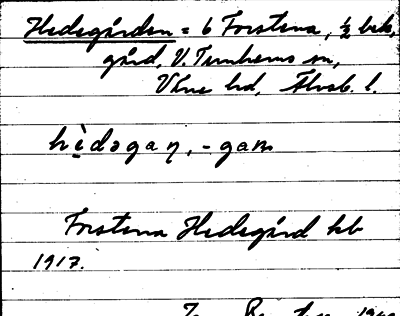 Hedegården = 6 Forstena, 1/2 bek.
gård, V. Tunhems sn,
Väne hd, Älvsb. l.
hèdəgaṇ, -gaɴ
Forstena Hedegård kb
1917.